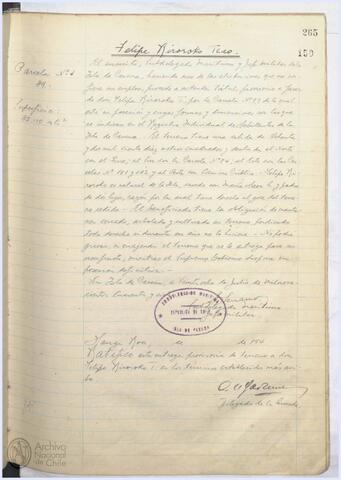 265
150
Felipe Riroroko Teao.
Parcela Nº
Superficie:
El suscrito, Subdelegado Marítimo y Jefe Militar de la
Isla de Pascua, haciendo uso de las atribuciones que me con-
fiere mi empleo, procedo a extender título provisorio a favor
de don Felipe Riroroko T. por la Parcela Nº
está en posesión y cuyas formas y dimensiones son las que
se indican en el Registro Individual de Habitantes de la
Isla de Pascua. El terreno tiene una
dos mil ciento diez metros cuadrados, y deslinda al Norte
con el Fisco; al Sur con la Parcela Nº; al Este con las Parce-
las Nº y al Oeste con Camino Público. Felipe Ri-
roroko es natural de la Isla, casado con María y padre
de dos hijos, razón por la cual tiene derecho al goce del terre-
no cedido. El beneficiado tiene la obligación de mante-
ner cercado, arbolado y cultivado su terreno, perdiendo
todo derecho si durante un año no lo hiciera. No podrá
gravar, ni enajenar el terreno que se le entrega para su
usufructo, mientras el Supremo Gobierno disponga su
posesión definitiva.
En Isla de Pascua, a veintiocho de Julio de mil nove-
cientos cuarenta y
SUBDELEGACION MARITIMA
REPUBLICA DE CHILE
ISLA DE PASCUA
Subdelegado Marítimo
Jefe Militar
Hanga Roa, de 194
Ratifico esta entrega provisoria de terreno a don
Felipe Riroroko T. en los términos establecidos más arri-
ba.
Delegado de la Armada
Archivo
Nacional
de Chile